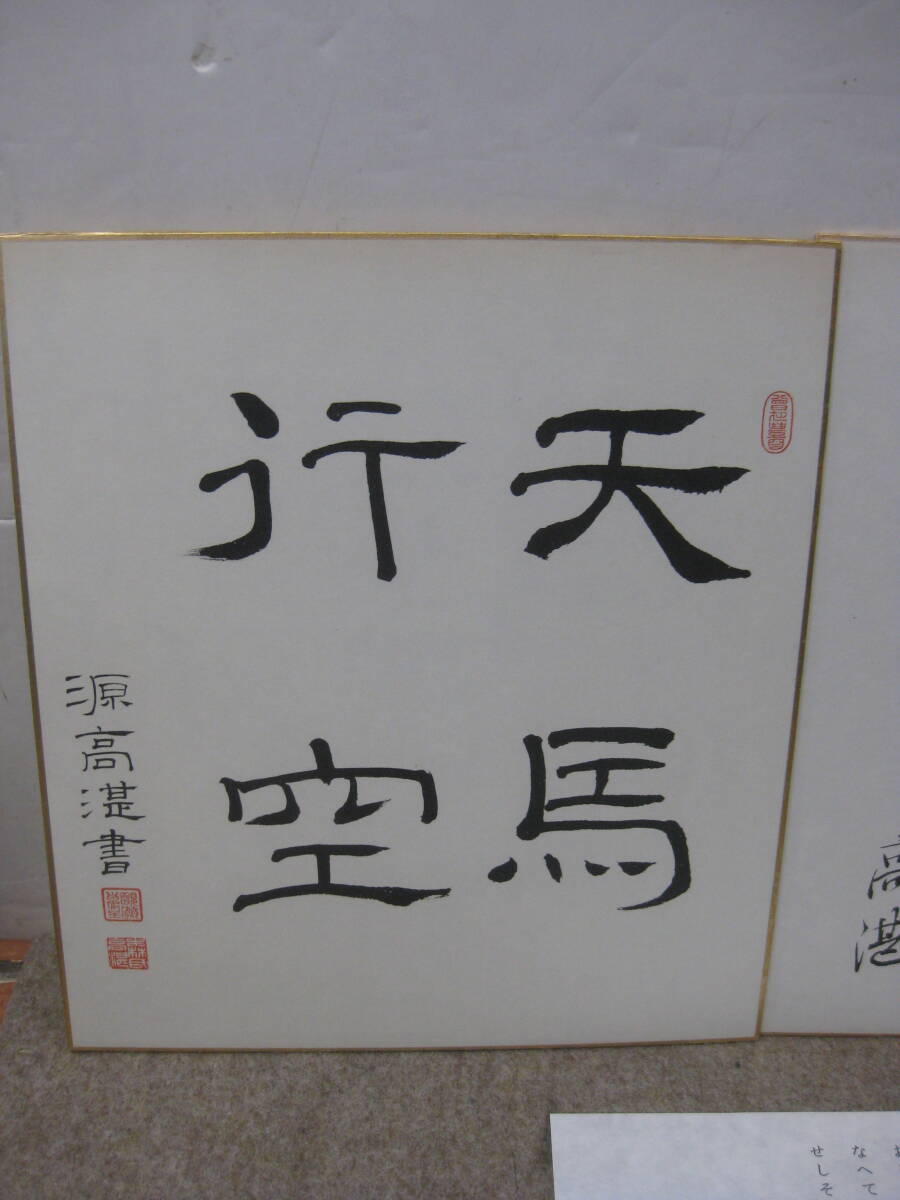 天馬
行空
源高湛書
高湛
なへて
せしそ